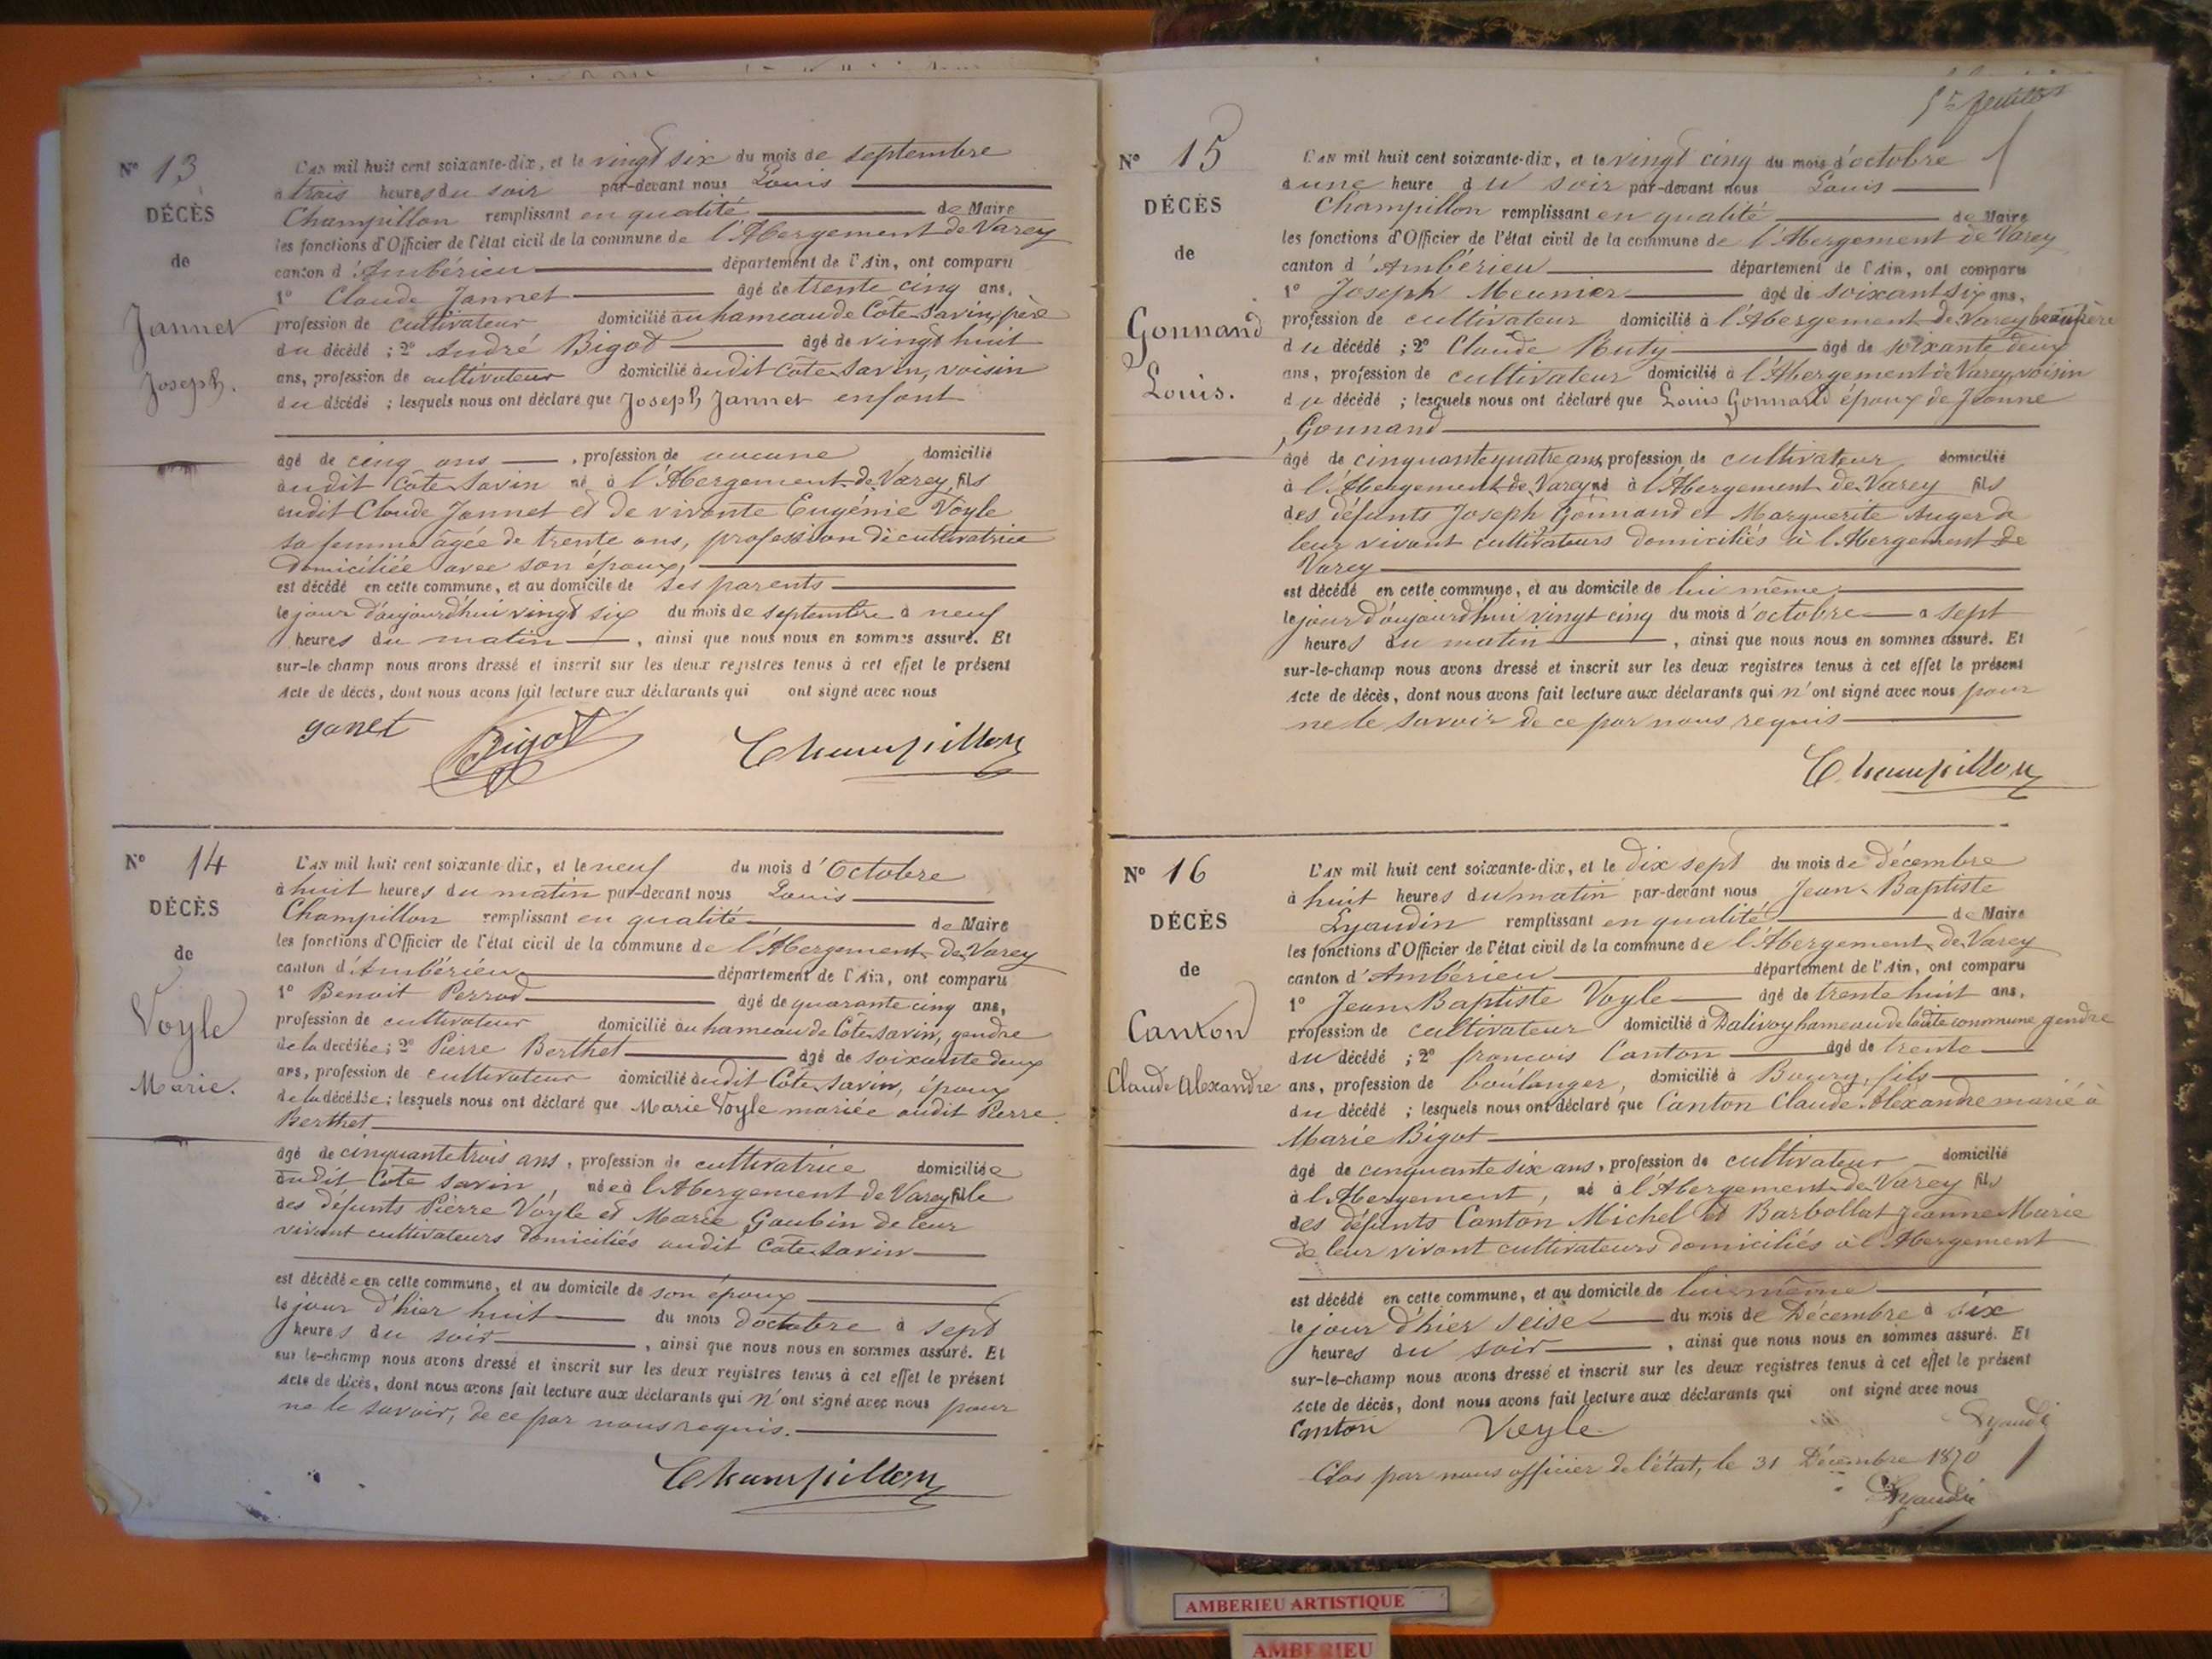 N° 13
DÉCÈS
de
Jannet
Joseph.
L'AN mil huit cent soixante-dix, et le vingt six du mois de septembre
à trois heures du soir par-devant nous Louis
Champillon remplissant en qualité de Maire
les fonctions d'Officier de l'état civil de la commune de l'Abergement de Varey
canton d'Ambérieu département de l'Ain, ont comparu
1° Claude Jannet âgé de trente cinq ans,
profession de cultivateur domicilié au hameau de Côte Savin, père
du décédé ; 2° André Bigot âgé de vingt huit
ans, profession de cultivateur domicilié audit Côte Savin, voisin
du décédé ; lesquels nous ont déclaré que Joseph Jannet enfant
âgé de cinq ans , profession de aucune domicilié
audit Côte Savin né à l'Abergement de Varey, fils
dudit Claude Jannet et de vivante Eugénie Voyle
sa femme âgée de trente ans, profession de cultivatrice
domiciliée avec son époux,
est décédé en cette commune, et au domicile de ses parents
le jour d'aujourd'hui vingt six du mois de septembre à neuf
heures du matin , ainsi que nous nous en sommes assuré. Et
sur-le-champ nous avons dressé et inscrit sur les deux registres tenus à cet effet le présent
Acte de décès, dont nous avons fait lecture aux déclarants qui ont signé avec nous
ganet Bigot Champillon
N° 14
DÉCÈS
de
Voyle
Marie.
L'AN mil huit cent soixante-dix, et le neuf du mois d'Octobre
à huit heures du matin par-devant nous Louis
Champillon remplissant en qualité de Maire
les fonctions d'Officier de l'état civil de la commune de l'Abergement de Varey
canton d'Ambérieu département de l'Ain, ont comparu
1° Benoit Perrod âgé de quarante cinq ans,
profession de cultivateur domicilié au hameau de Côte Savin, gendre
de la décédée ; 2° Pierre Berthet âgé de soixante deux
ans, profession de cultivateur domicilié audit Côte Savin, époux
de la décédée ; lesquels nous ont déclaré que Marie Voyle mariée audit Pierre
Berthet
âgé de cinquante trois ans, profession de cultivatrice domiciliée
audit Côte Savin, née à l'Abergement de Varey fille
des défunts Pierre Voyle et Marie Goubin de leur
vivant cultivateurs domiciliés audit Côte Savin
est décédée en cette commune, et au domicile de son époux
le jour d'hier huit du mois d'octobre à sept
heures du soir , ainsi que nous nous en sommes assuré. Et
sur le-champ nous avons dressé et inscrit sur les deux registres tenus à cet effet le présent
Acte de décès, dont nous avons fait lecture aux déclarants qui n'ont signé avec nous pour
ne le savoir, de ce par nous requis.
Champillon
5e feuillet
N° 15
DÉCÈS
de
Gonnand
Louis.
L'AN mil huit cent soixante-dix, et le vingt cinq du mois d'octobre
à une heure du soir par-devant nous Louis
Champillon remplissant en qualité de Maire
les fonctions d'Officier de l'état civil de la commune de l'Abergement de Varey
canton d'Ambérieu département de l'Ain, ont comparu
1° Joseph Meunier âgé de soixant six ans,
profession de cultivateur domicilié à l'Abergement de Varey beau frère
du décédé ; 2° Claude Ruty âgé de soixante deux
ans, profession de cultivateur domicilié à l'Abergement de Varey, voisin
du décédé ; lesquels nous ont déclaré que Louis Gonnand époux de Jeanne
Gonnand
âgé de cinquante quatre ans, profession de cultivateur domicilié
à l'Abergement de Varey né à l'Abergement de Varey fils
des défunts Joseph Gonnand et Marguerite Auger de
leur vivant cultivateurs domiciliés à l'Abergement de
Varey
est décédé en cette commune, et au domicile de lui même
le jour d'aujourd'hui vingt cinq du mois d'octobre à sept
heures du matin , ainsi que nous nous en sommes assuré. Et
sur-le-champ nous avons dressé et inscrit sur les deux registres tenus à cet effet le présent
Acte de décès, dont nous avons fait lecture aux déclarants qui n'ont signé avec nous pour
ne le savoir de ce par nous requis
Champillon
N° 16
DÉCÈS
de
Canton
Claude Alexandre
L'AN mil huit cent soixante-dix, et le dix sept du mois de décembre
à huit heures du matin par-devant nous Jean-Baptiste
Lyaudin remplissant en qualité de Maire
les fonctions d'Officier de l'état civil de la commune de l'Abergement de Varey
canton d'Ambérieu département de l'Ain, ont comparu
1° Jean-Baptiste Voyle âgé de trente huit ans,
profession de cultivateur domicilié à Dalivoy hameau de ladite commune gendre
du décédé ; 2° francois Canton âgé de trente
ans, profession de boulanger, domicilié à Bourg, fils
du décédé ; lesquels nous ont déclaré que Canton Claude Alexandre marié à
Marie Bigot
âgé de cinquante six ans, profession de cultivateur domicilié
à l'Abergement, né à l'Abergement de Varey fils
des défunts Canton Michel et Barbollat Jeanne Marie
de leur vivant cultivateurs domiciliés à l'Abergement
est décédé en cette commune, et au domicile de lui-même
le jour d'hier seise du mois de Décembre à six
heures du soir , ainsi que nous nous en sommes assuré. Et
sur-le-champ nous avons dressé et inscrit sur les deux registres tenus à cet effet le présent
Acte de décès, dont nous avons fait lecture aux déclarants qui ont signé avec nous
Canton Veyle Lyaudi
Clos par nous officier de l'état, le 31 Décembre 1870
Lyaudi
AMBERIEU ARTISTIQUE
AMBERIEU